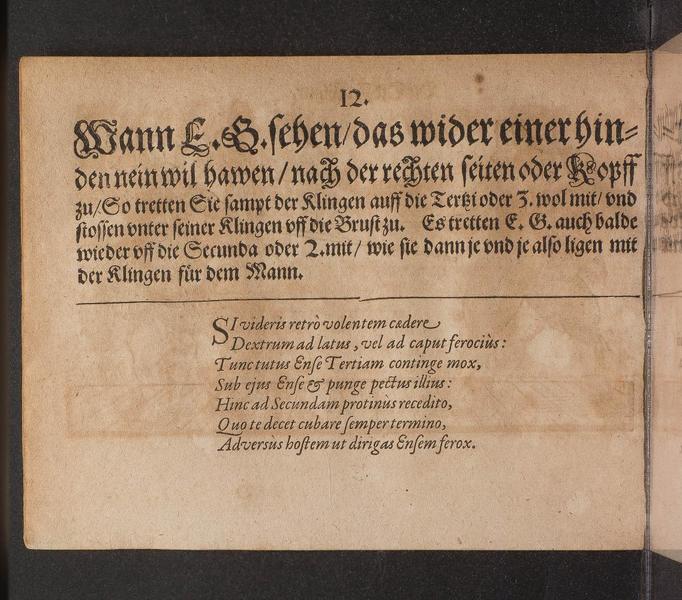 12.
Wann E. G. sehen/das wider einer hin⸗
den nein wil hawen/nach der rechten seiten oder Kopff
zu/So tretten Sie sampt der Klingen auff die Tertzi oder 3. wol mit/vnd
stossen vnter seiner Klingen vff die Brust zu. Es tretten E. G. auch balde
wieder vff die Secunda oder 2. mit/ wie sie dann je vnd je also ligen mit
der Klingen für dem Mann.
SI videris retrò volentem cædere
Dextrum ad latus, vel ad caput ferociùs:
Tunc tutus Ense Tertiam continge mox,
Sub ejus Ense & punge pectus illius:
Hinc ad Secundam protinùs recedito,
Quo te decet cubare semper termino,
Adversùs hostem ut dirigas Ensem ferox.